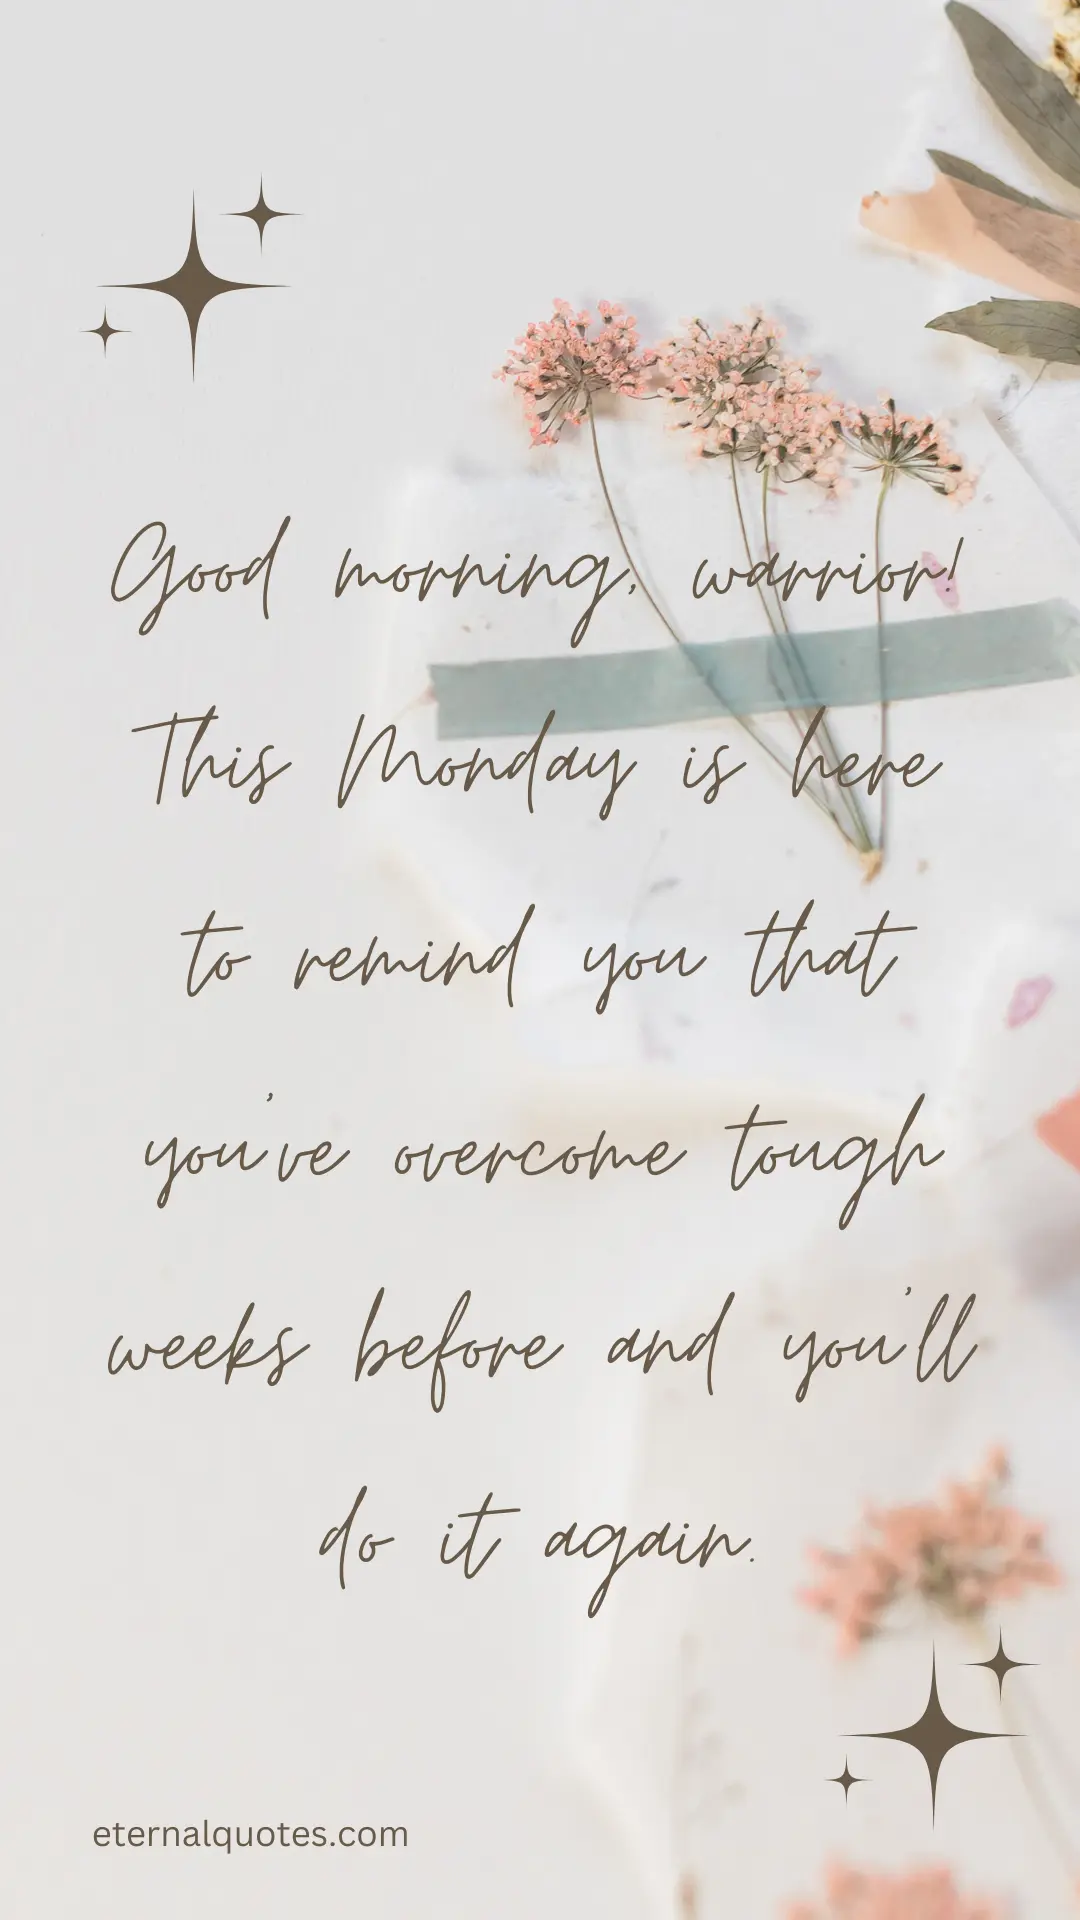 Good morning, warrior!
This Monday is here
to remind you that
you've overcome tough
weeks before and you'll
do it again.
eternalquotes.com